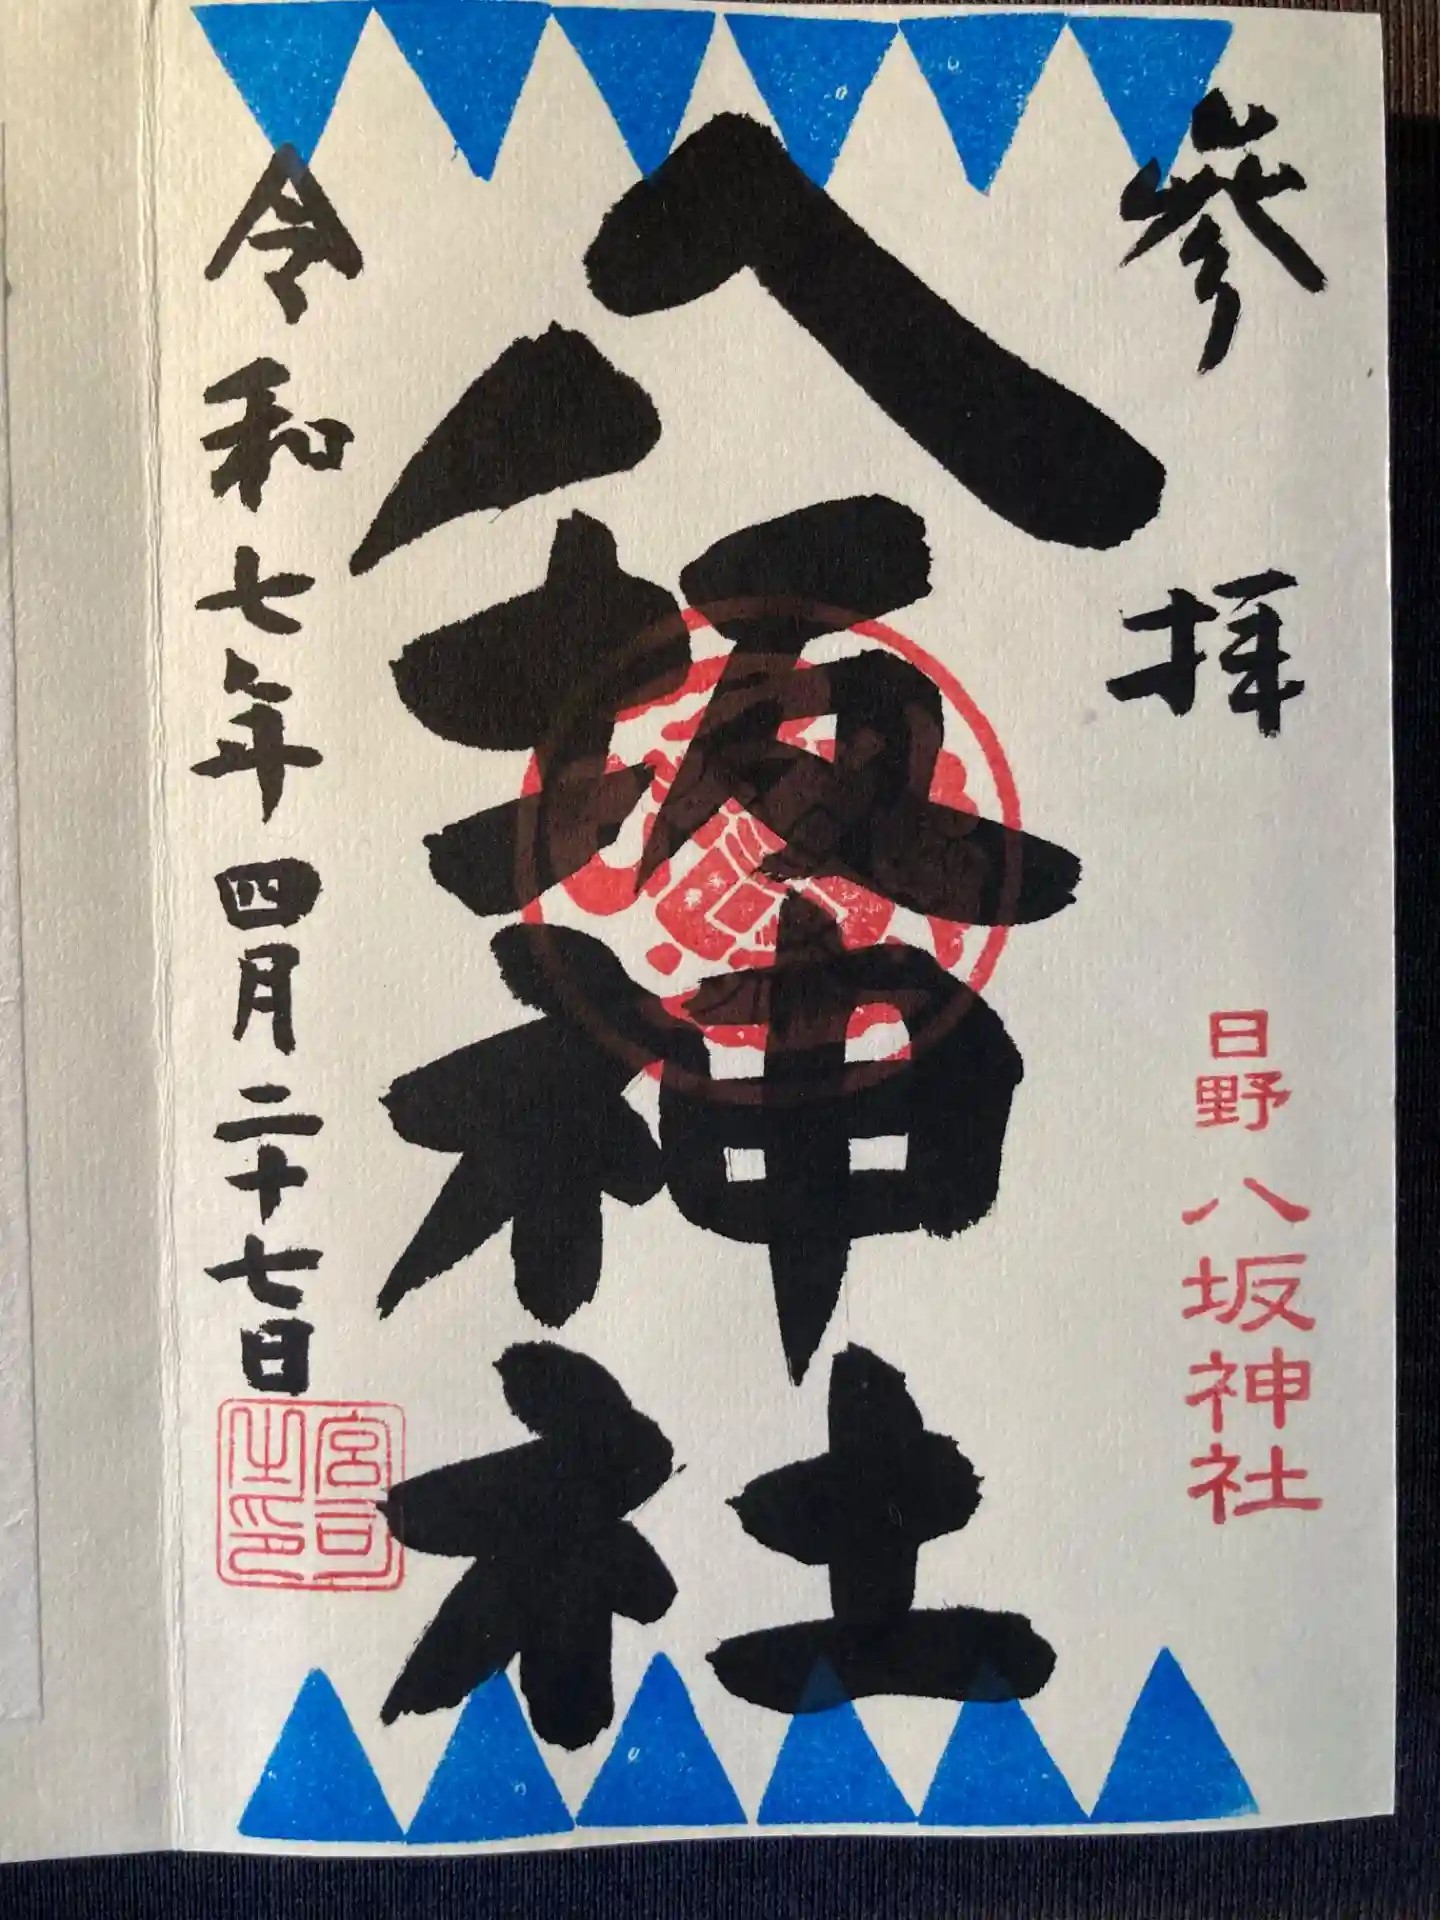 參拝
日野 八坂神社
八坂神社
令和七年四月二十七日
宮司
之印